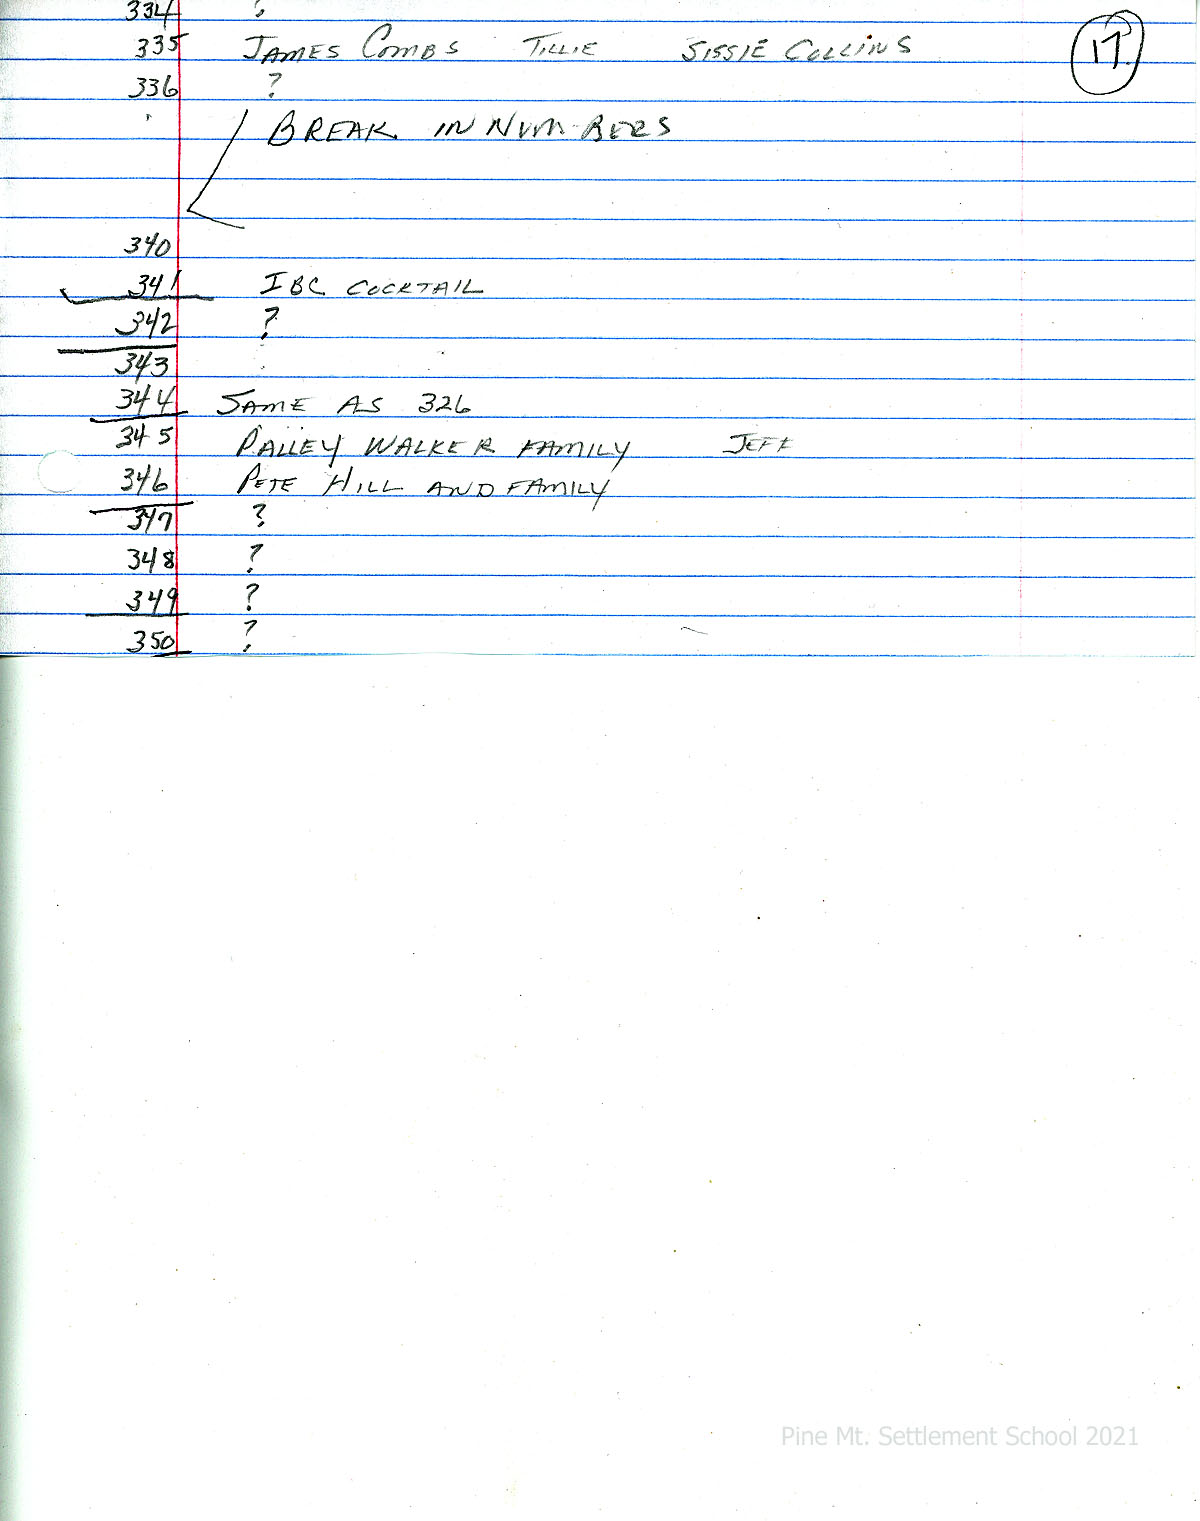 334 ?
335 JAMES COMBS TILLIE SISSIE COLLINS 17.
336 ?
BREAK IN NUMBERS
340
341 IBC COCKTAIL
342 ?
343
344 SAME AS 326
345 WALKER FAMILY JEFF
346 PETE HILL AND FAMILY
347 ?
348 ?
349 ?
350 ?
Pine Mt. Settlement School 2021